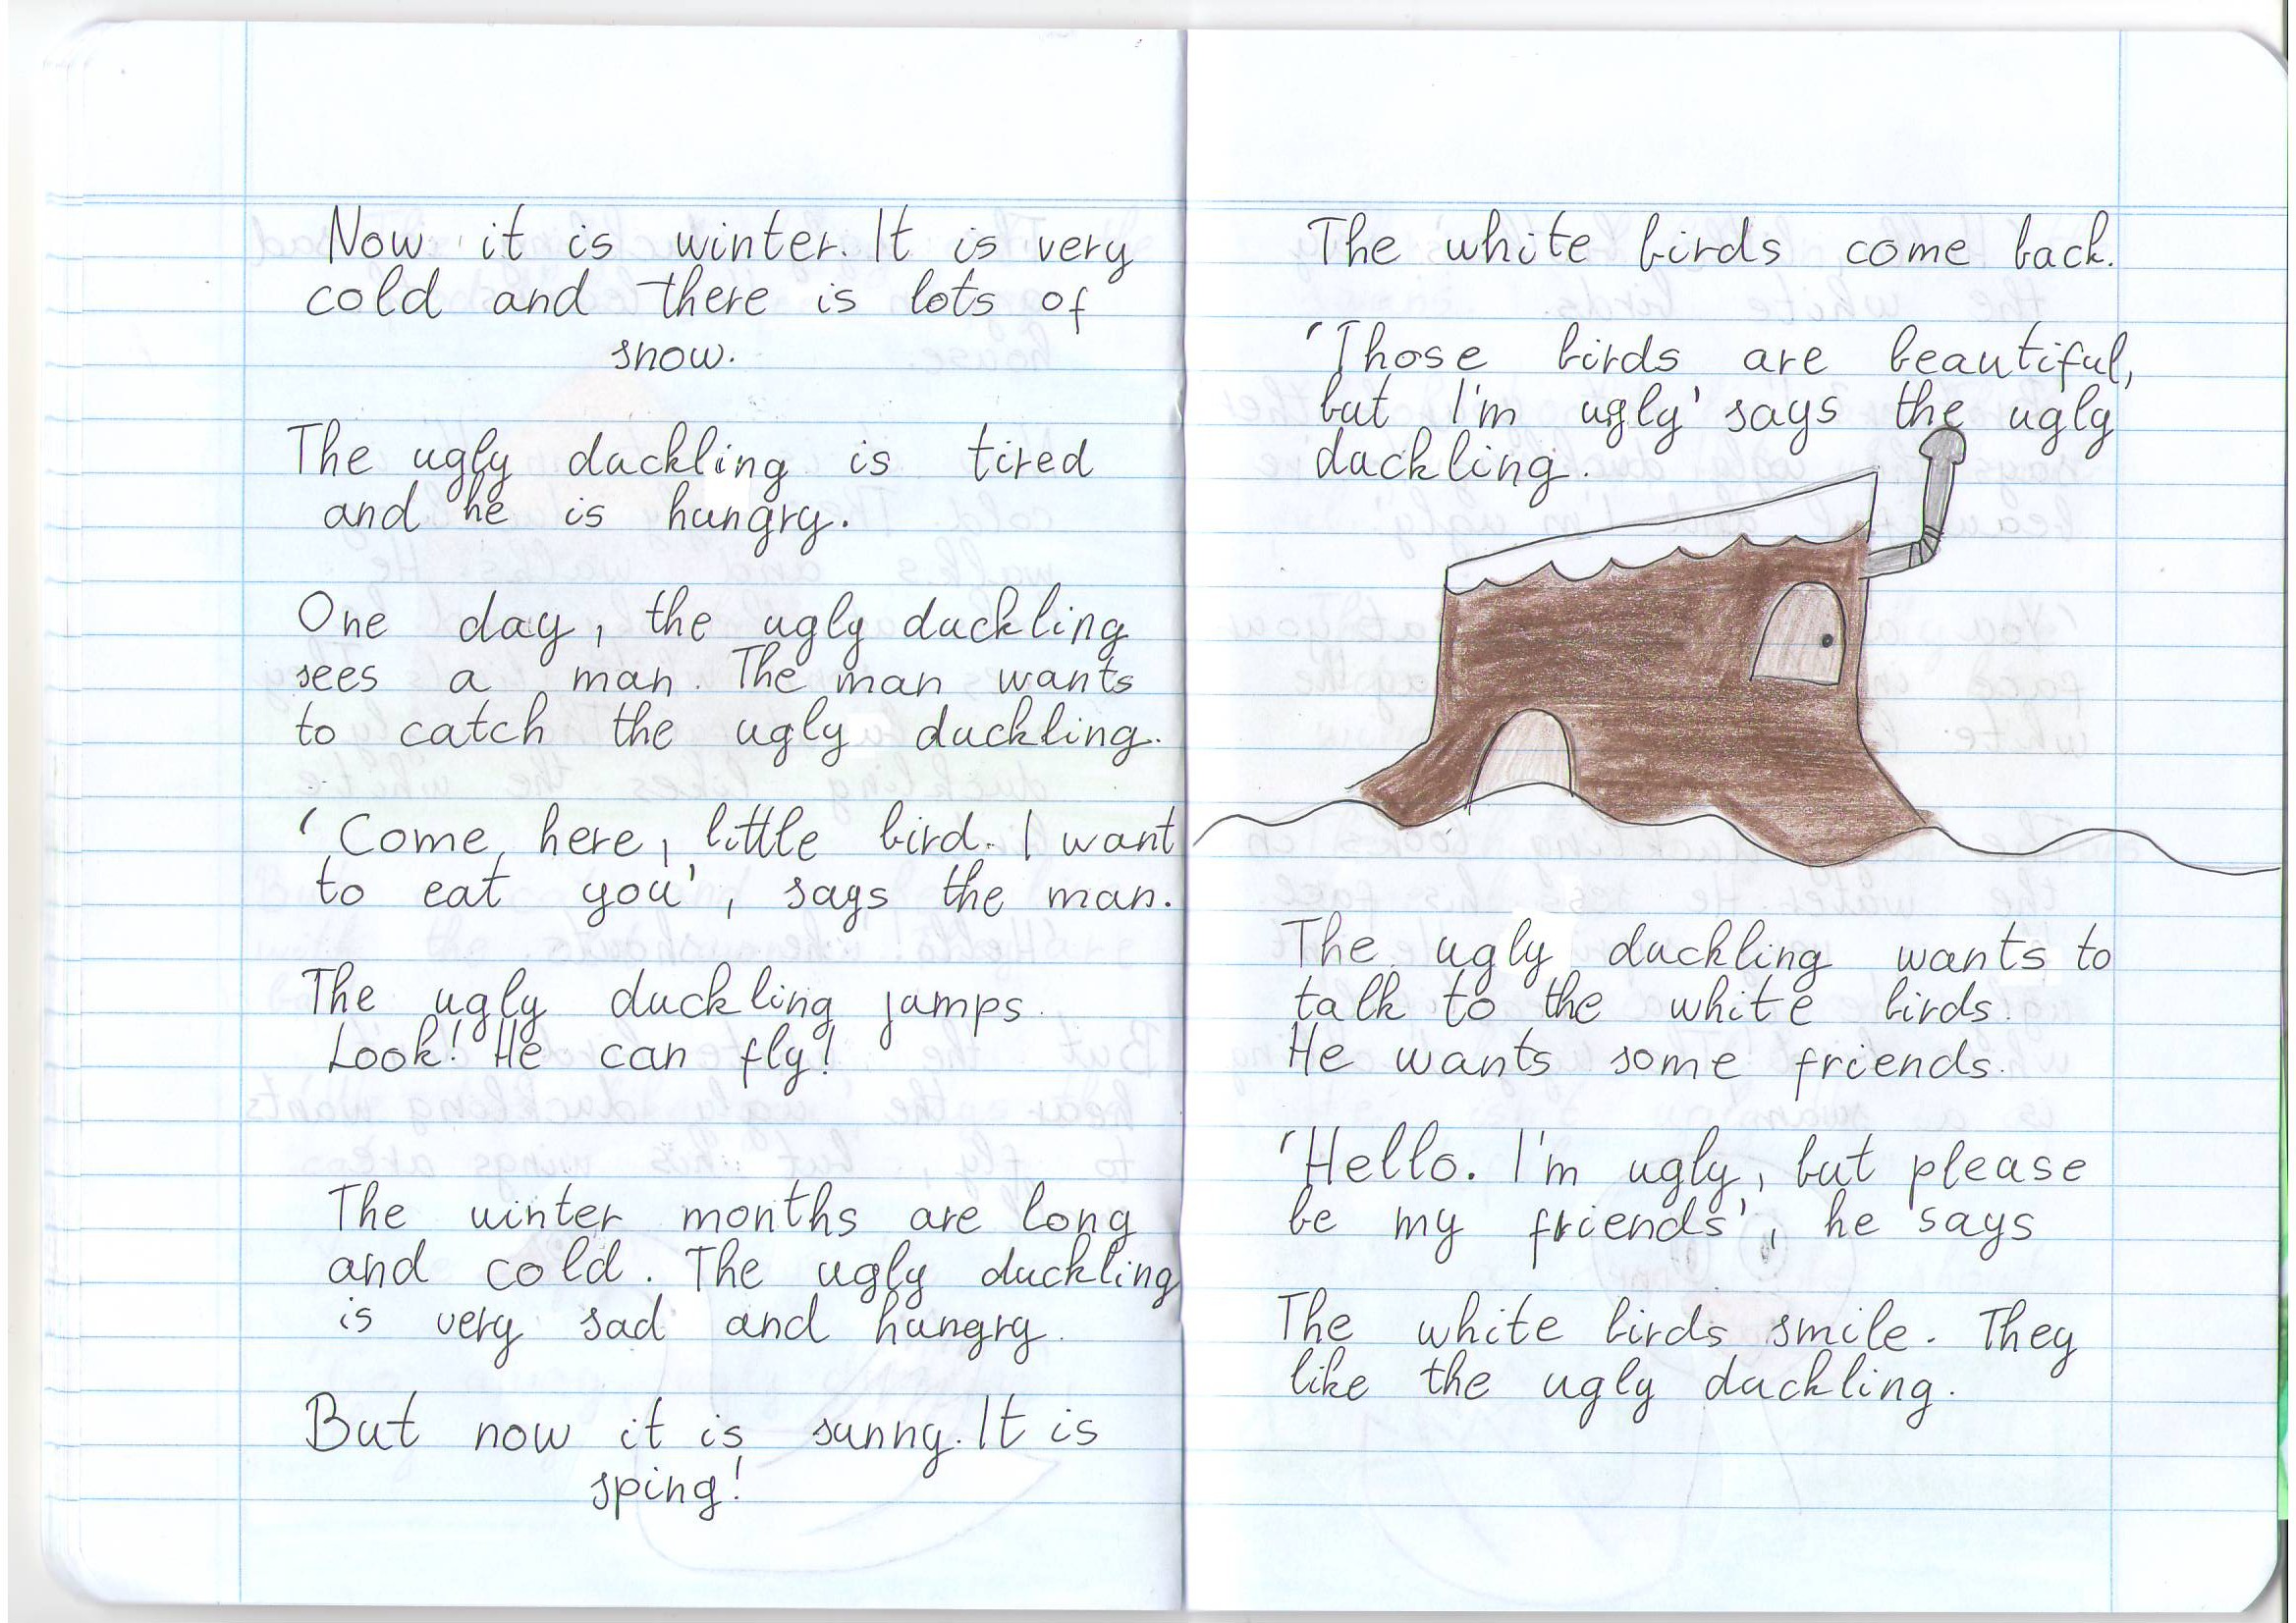 Now it is winter. It is very
cold and there is lots of
snow.
The ugly duckling is tired
and he is hungry.
One day, the ugly duckling
sees a man. The man wants
to catch the ugly duckling.
'Come here, little bird. I want
to eat you', says the man.
The ugly duckling jamps.
Look! He can fly!
The winter months are long
and cold. The ugly duckling
is very sad and hungry.
But now it is sunny. It is
sping!
The white birds come back.
'Those birds are beautiful,
but I'm ugly' says the ugly
duckling.
The ugly duckling wants to
talk to the white birds.
He wants some friends.
'Hello. I'm ugly, but please
be my friends', he says
The white birds smile. They
like the ugly duckling.